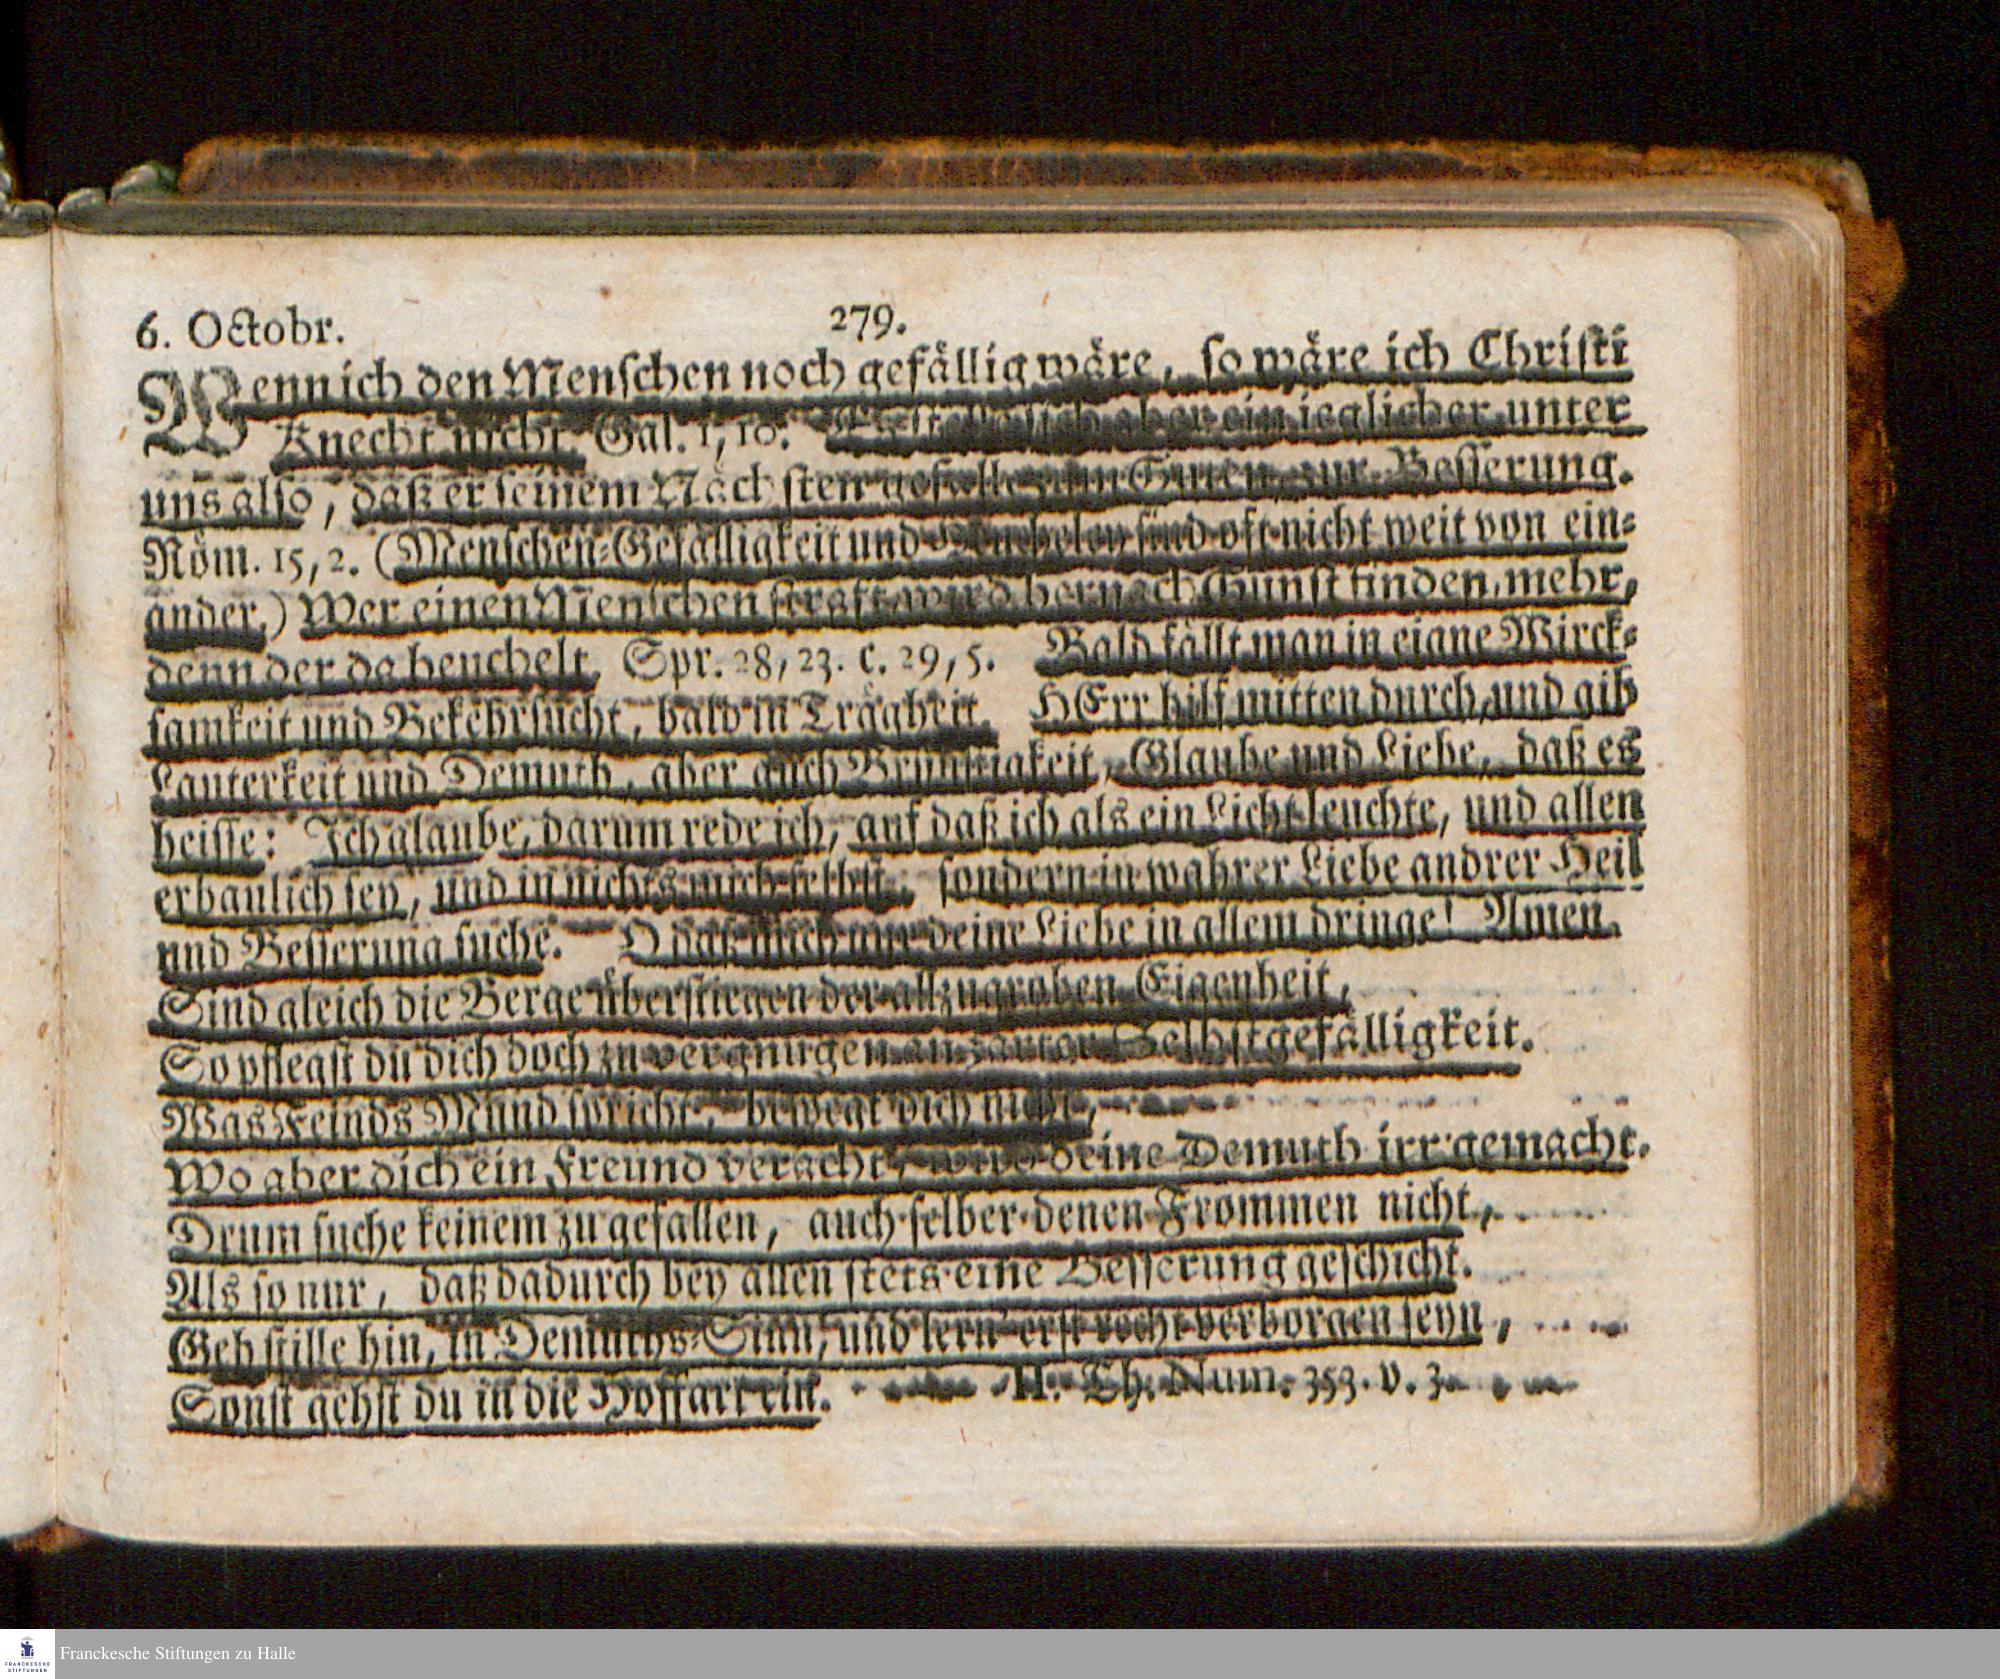 6. Octobr.
279.
Wenn ich den Menschen noch gefällig wäre, so wäre ich Christi
Knecht nicht. Gal. 1, 10. Es stelle sich aber ein ieglicher unter
uns also, daß er seinem Nächsten gefalle zum Guten, zur Besserung.
Röm. 15, 2. (Menschen-Gefälligkeit und Heucheley sind oft nicht weit von ein-
ander.) Wer einen Menschen straft, wird hernach Gunst finden, mehr,
denn der da heuchelt. Spr. 28, 23. c. 29, 5. Bald fällt man in eigne Wirck-
samkeit und Bekehrsucht, bald in Trägheit. HErr hilf mitten durch, und gib
Lauterkeit und Demuth, aber auch Brünstigkeit, Glaube und Liebe, daß es
heisse: Ich glaube, darum rede ich, auf daß ich als ein Licht leuchte, und allen
erbaulich sey, und in nichts mich selbst, sondern in wahrer Liebe andrer Heil
und Besserung suche. O daß mich nur deine Liebe in allem dringe! Amen.
Sind gleich die Berge überstiegen der allzugroben Eigenheit,
So pflegst du dich doch zu vergnügen an zarter Selbstgefälligkeit.
Was Feinds Mund spricht, bewegt dich nicht,
Wo aber dich ein Freund veracht, wird deine Demuth irr gemacht.
Drum suche keinem zu gefallen, auch selber denen Frommen nicht,
Als so nur, daß dadurch bey allen stets eine Besserung geschicht.
Geh stille hin, in Demuths-Sinn, und lern erst recht verborgen seyn,
Sonst gehst du in die Hoffart ein. II. Th. Num. 353. v. 3.
Franckesche Stiftungen zu Halle
FRANCKESCHE
STIFTUNGEN